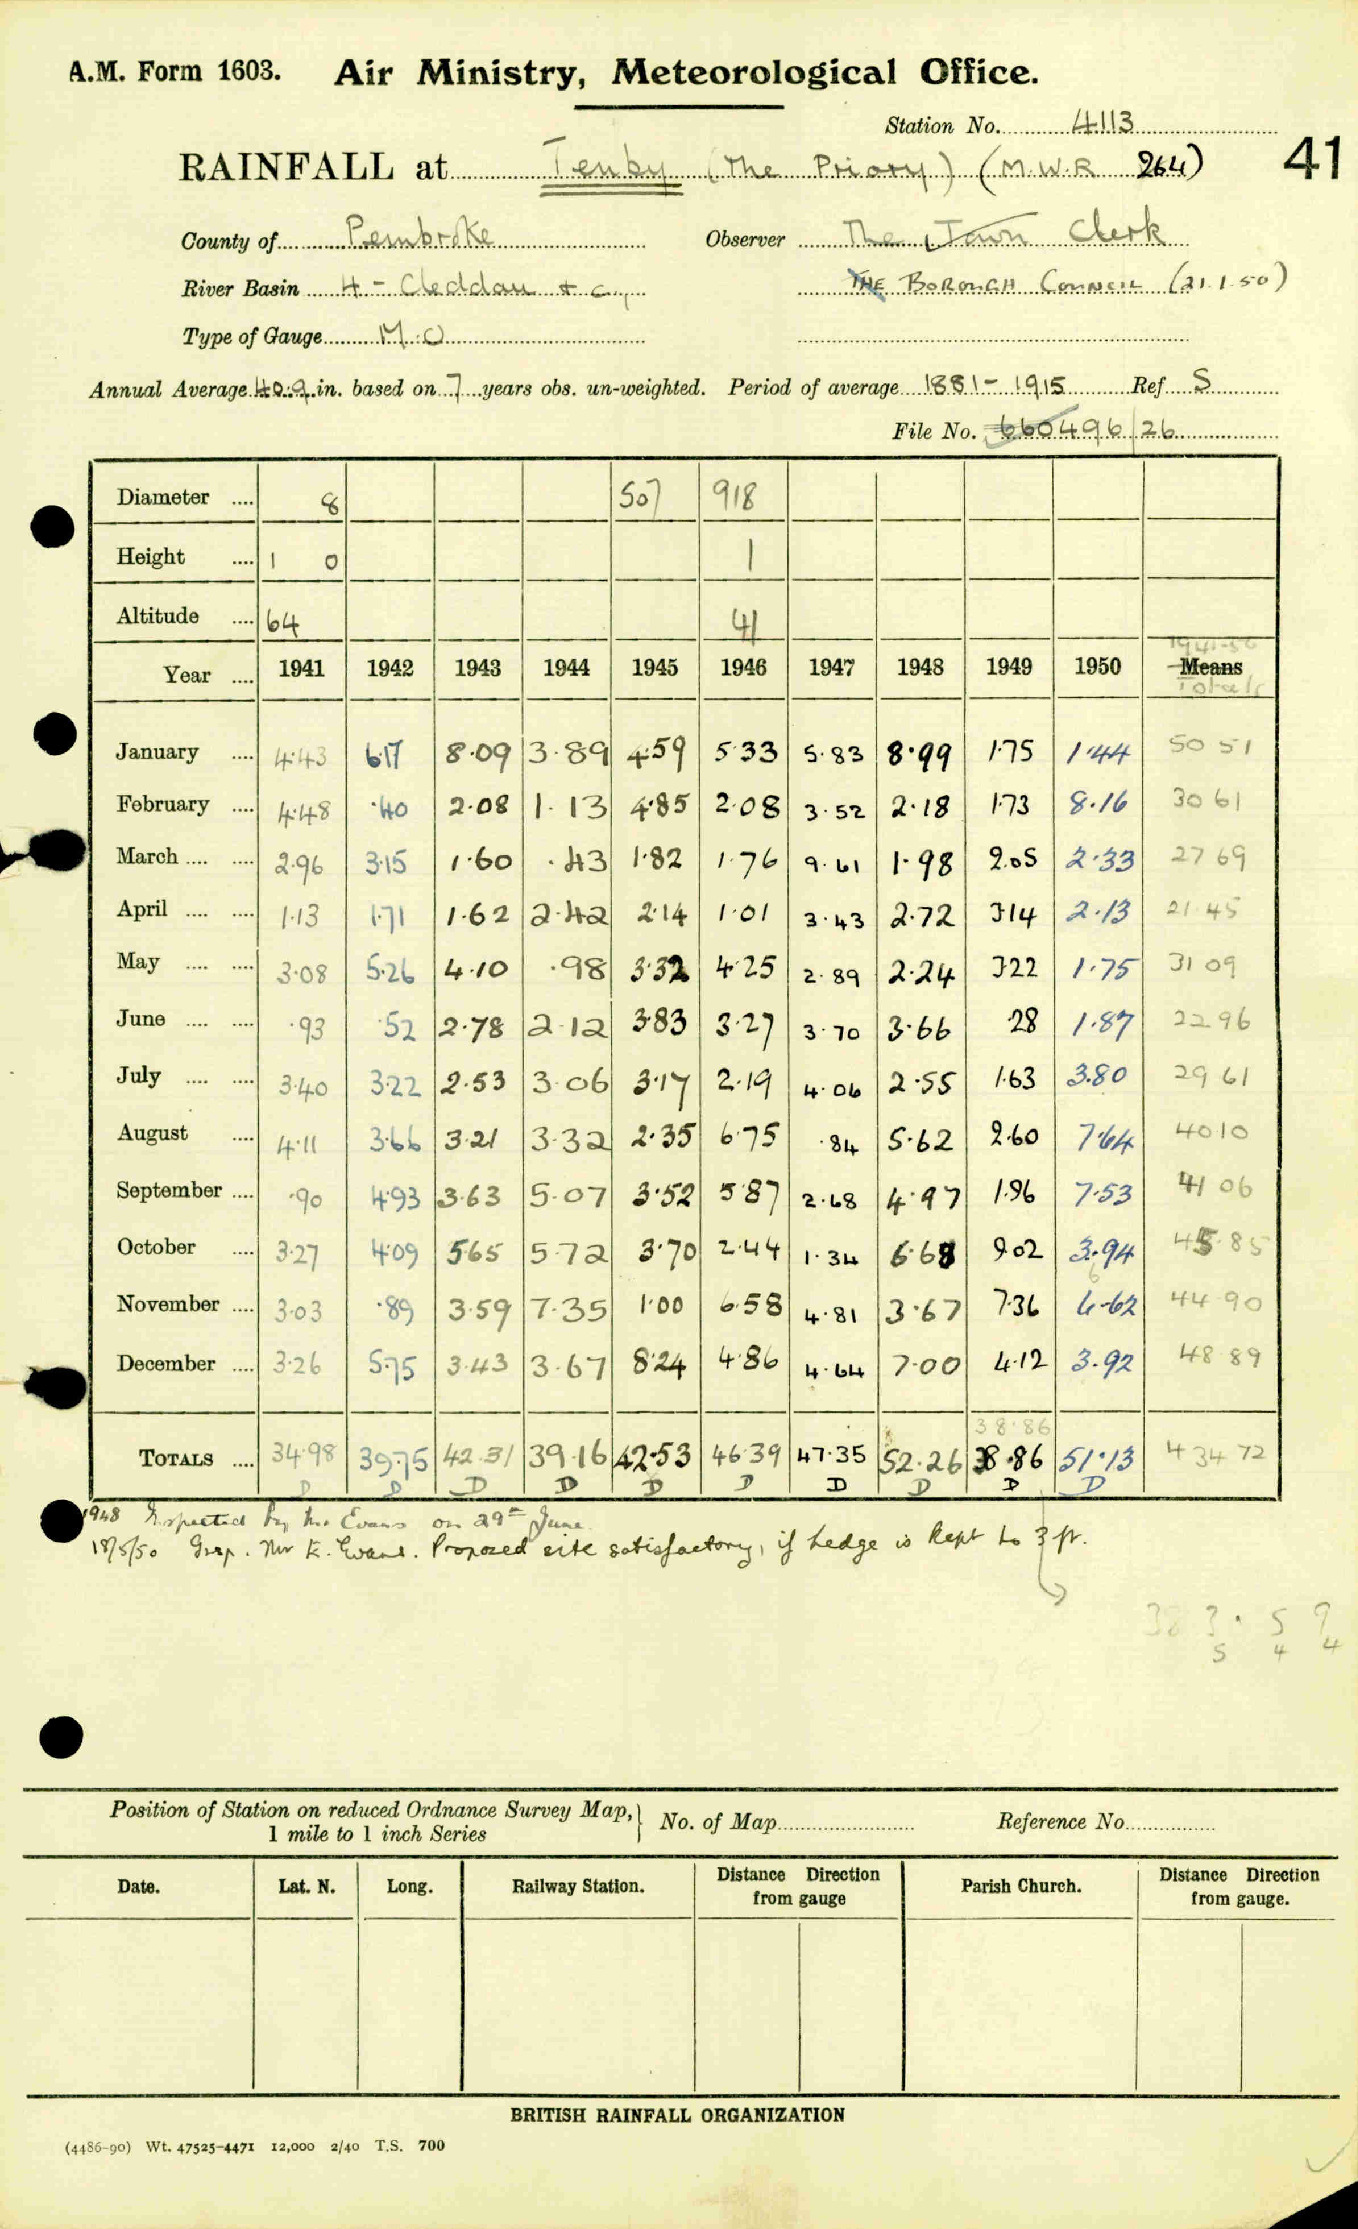 A.M. Form 1603. Air Ministry, Meteorological Office.
Station No. 4113
RAINFALL at Tenby (The Priory) (M.W.R 264) 41
County of Pembroke Observer The Town Clerk
River Basin 4 - Cleddau + c, THE BOROUGH COUNCIL (21.1.50)
Type of Gauge M.O
Annual Average 40.9 in. based on 7 years obs. un-weighted. Period of average 1881-1915 Ref S
File No. 660496/26
Diameter .... 8 507 918
Height .... 1 0 1
Altitude .... 64 41
1941-50
Year .... 1941 1942 1943 1944 1945 1946 1947 1948 1949 1950 Means
Totals
January .... 4.43 6.17 8.09 3.89 4.59 5.33 5.83 8.99 1.75 1.44 50 51
February .... 4.48 .40 2.08 1.13 4.85 2.08 3.52 2.18 1.73 8.16 30 61
March .... .... 2.96 3.15 1.60 .43 1.82 1.76 9.61 1.98 2.05 2.33 27 69
April .... .... 1.13 1.71 1.62 2.42 2.14 1.01 3.43 2.72 3.14 2.13 21 45
May .... .... 3.08 5.26 4.10 .98 3.32 4.25 2.89 2.24 3.22 1.75 31 09
June .... .... .93 .52 2.78 2.12 3.83 3.27 3.70 3.66 .28 1.87 22 96
July .... .... 3.40 3.22 2.53 3.06 3.17 2.19 4.06 2.55 1.63 3.80 29 61
August .... 4.11 3.66 3.21 3.32 2.35 6.75 .84 5.62 2.60 7.64 40 10
September .... .90 4.93 3.63 5.07 3.52 5.87 2.68 4.97 1.96 7.53 41 06
October .... 3.27 4.09 5.65 5.72 3.70 2.44 1.34 6.68 9.02 3.94 45.85
November .... 3.03 .89 3.59 7.35 1.00 6.58 4.81 3.67 7.36 6.62 44 90
December .... 3.26 5.75 3.43 3.67 8.24 4.86 4.64 7.00 4.12 3.92 48 89
38.86
TOTALS .... 34.98 39.75 42.31 39.16 42.53 46.39 47.35 52.26 38.86 51.13 434 72
D D D D D D D D D D
1948 Inspected by Mr Evans on 29th June
18/5/50 Insp. Mr E. Evans. Proposed site satisfactory, if hedge is kept to 3 ft.
383.59
5 4 4
Position of Station on reduced Ordnance Survey Map, 1 mile to 1 inch Series No. of Map Reference No.
Date. Lat. N. Long. Railway Station. Distance from gauge Direction Parish Church. Distance Direction from gauge.
BRITISH RAINFALL ORGANIZATION
(4486-90) Wt. 47525-4471 12,000 2/40 T.S. 700